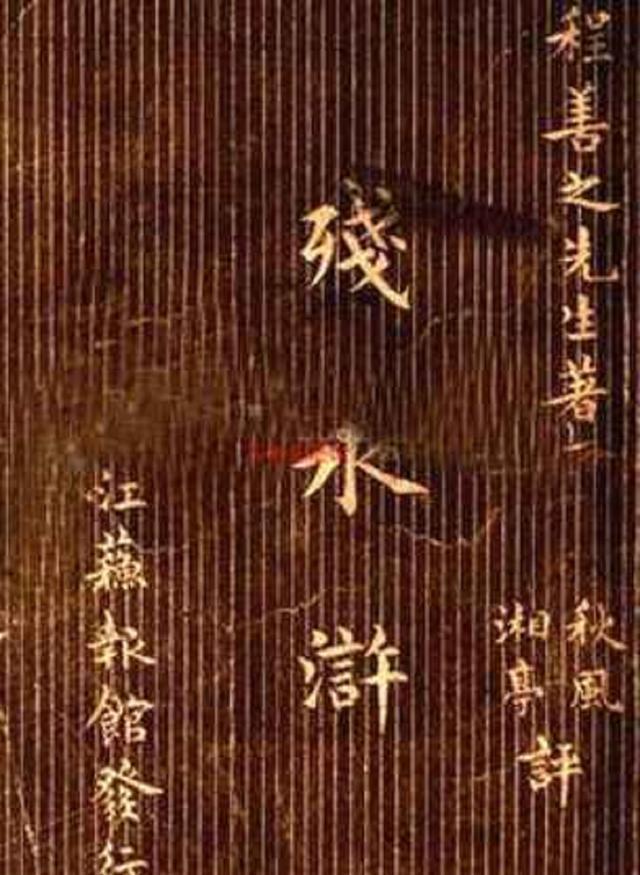 程善之先生著
秋風
湘亭
評
殘水滸
江蘇報館發行